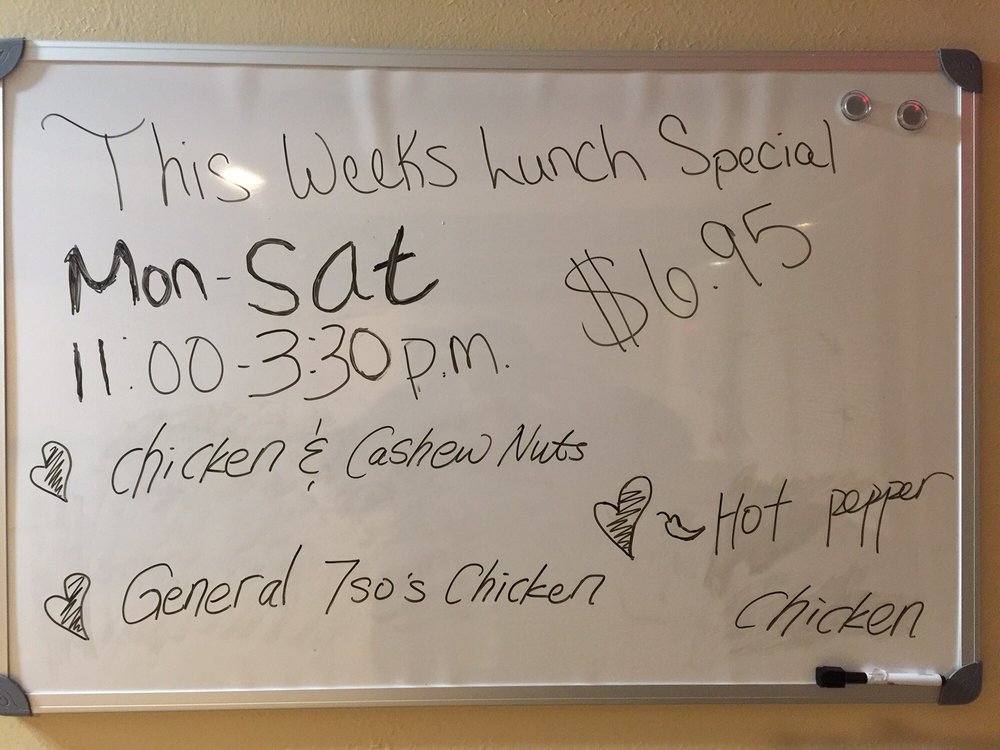 This Weeks Lunch Special
Mon-Sat
$6.95
11:00-3:30 p.m.
Chicken & Cashew Nuts
Hot pepper
Chicken
General Tso's Chicken